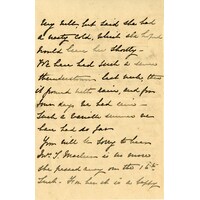 very well, but said she had
a nasty cold, which she hoped
would leave her shortly –
We have had such a severe
thunderstorm last week, then
it poured with rain, and for
four days we had rain –
Such a terrible summer we
have had so far
You will be sorry to hear
Mrs. T. is no more
she passed away on the 16th
For her it is a happy